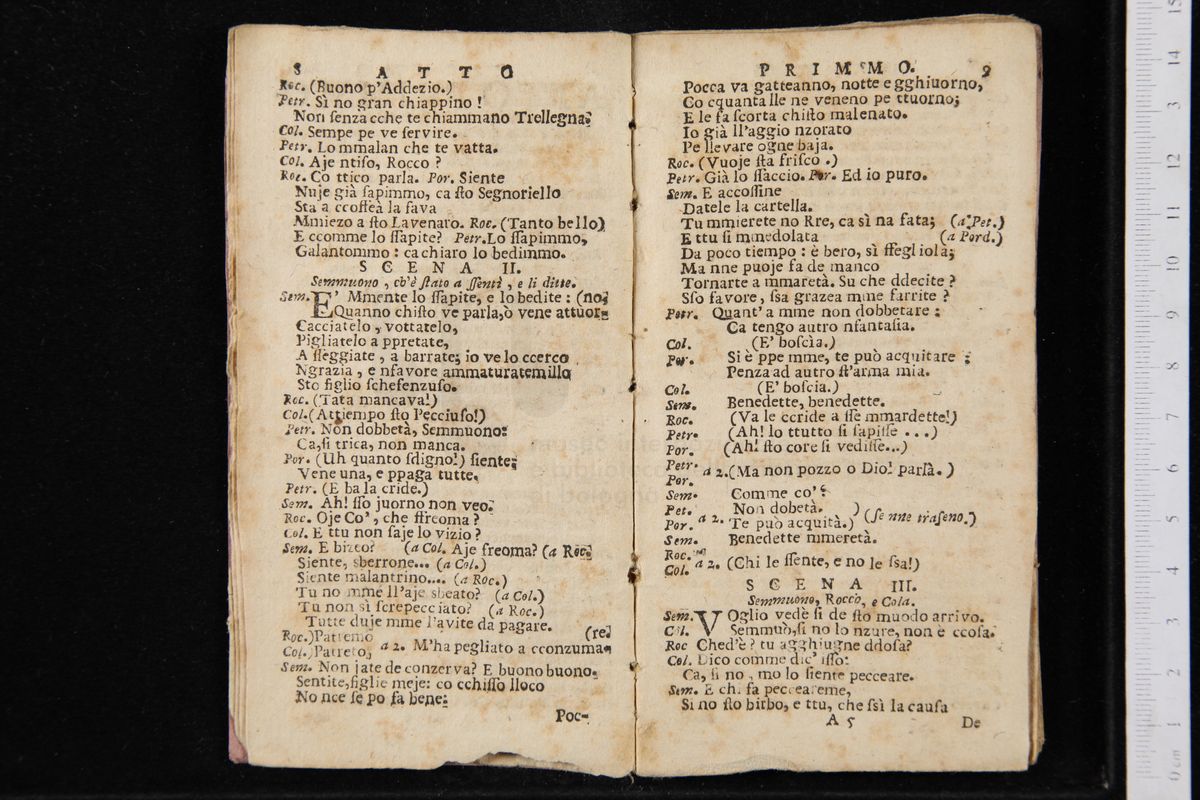 8 A T T O
Roc. (Buono p'Addezio.)
Petr. Sì no gran chiappino !
Non ſenza cche te chiammano Trellegna?
Col. Sempe pe ve ſervire.
Petr. Lo mmalan che te vatta.
Col. Aje ntiſo, Rocco ?
Roc. Co ttico parla. Por. Siente
Nuje già ſapimmo, ca ſto Segnoriello
Sta a ccoffeà la fava
Mmiezo a ſto Lavenaro. Roc. (Tanto bello)
E ccomme lo ſſapite? Petr. Lo ſſapimmo,
Galantommo : ca chiaro lo bedimmo.
S C E N A II.
Semmuono , ch'è ſtato a ſſentì , e li ditte.
Sem. E' Mmente lo ſſapite, e lo bedite : (no;
Quanno chiſto ve parla,ò vene attuor-
Cacciatelo , vottatelo,
Pigliatelo a ppretate,
A ſſeggiate , a barrate; io ve lo ccerco
Ngrazia , e nfavore ammaturatemillo
Sto figlio ſchefenzuſo.
Roc. (Tata mancava!)
Col. (Attiempo ſto Pecciuſo!)
Petr. Non dobbetà, Semmuono:
Ca,ſi trica, non manca.
Por. (Uh quanto ſdigno!) ſiente;
Vene una, e ppaga tutte.
Petr. (E ba la cride.)
Sem. Ah! iſſo juorno non veo.
Roc. Oje Co', che ffreoma ?
Col. E ttu non ſaje lo vizio ?
Sem. E bizeo? (a Col. Aje freoma? (a Roc.)
Siente, sberrone... (a Col.)
Siente malantrino.... (a Roc.)
Tu no mme ll'aje sbeato? (a Col.)
Tu non sì ſcrepecciato? (a Roc.)
Tutte duje mme l'avite da pagare.
Roc.) Patremo (re.
Col.) Patreto, a 2. M'ha pegliato a cconzuma-
Sem. Non jate de conzerva? E buono buono.
Sentite,figlie meje: co cchiſſo lloco
No nce ſe po fa bene:
Poc-
P R I M M O. 9
Pocca va gatteanno, notte e gghiuorno,
Co cquanta lle ne veneno pe ttuorno;
E le fa ſcorta chiſto malenato.
Io già ll'aggio nzorato
Pe llevare ogne baja.
Roc. (Vuoje ſta friſco .)
Petr. Già lo ſſaccio. Por. Ed io puro.
Sem. E accoſſine
Datele la cartella.
Tu mmierete no Rre, ca sì na fata; (a Pet.)
E ttu ſi mmedolata (a Pord.)
Da poco tiempo : è bero, sì ffegliola;
Ma nne puoje fa de manco
Tornarte a mmaretà. Su che ddecite ?
Sſo favore, ſsa grazea mme farrite ?
Petr. Quant' a mme non dobbetare :
Ca tengo autro nfantaſia.
Col. (E' boſcìa.)
Por. Si è ppe mme, te può acquitare :
Penza ad autro ſt'arma mia.
Col. (E' boſcia.)
Sem. Benedette, benedette.
Roc. (Va le ccride a ſſe mmardette!)
Petr. (Ah! lo ttutto ſi ſapiſſe ...)
Por. (Ah! ſto core ſi vediſſe...)
Petr.
Por. a 2. (Ma non pozzo o Dio! parlà. )
Sem. Comme co' ?
Pet. Non dobetà. )
Por. a 2. Te può acquità.) (ſe nne traſeno.)
Sem. Benedette mmeretà.
Roc.
Col. a 2. (Chi le ſſente, e no le ſsa!)
S C E N A III.
Semmuono, Rocco, e Cola.
Sem. VOglio vedè ſi de ſto muodo arrivo.
Col. Semmuò,ſi no lo nzure, non è ccoſa.
Roc Ched'è ? tu agghiugne ddoſa?
Col. Dico comme dic' iſſo:
Ca, ſi no , mo lo ſiente pecceare.
Sem. E chi fa pecceareme,
Si no ſto birbo, e ttu, che ſsì la cauſa
A 5 De